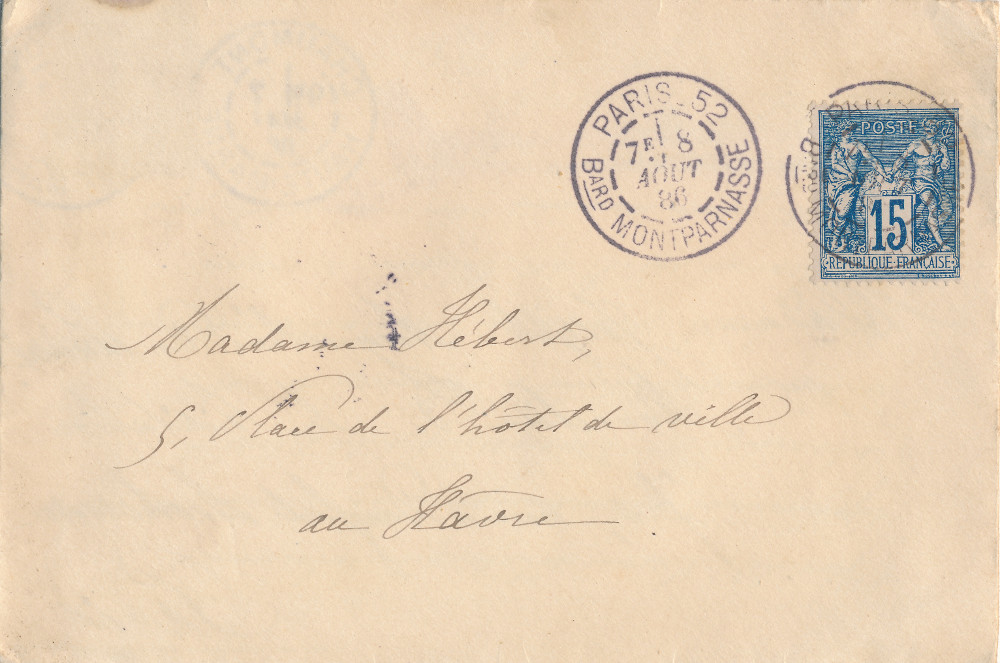 PARIS_52
7E 8
AOUT
86
BARD MONTPARNASSE
POSTES
15
REPUBLIQUE FRANÇAISE
Madame Hébert,
5, Place de l'hôtel de ville
au Hâvre